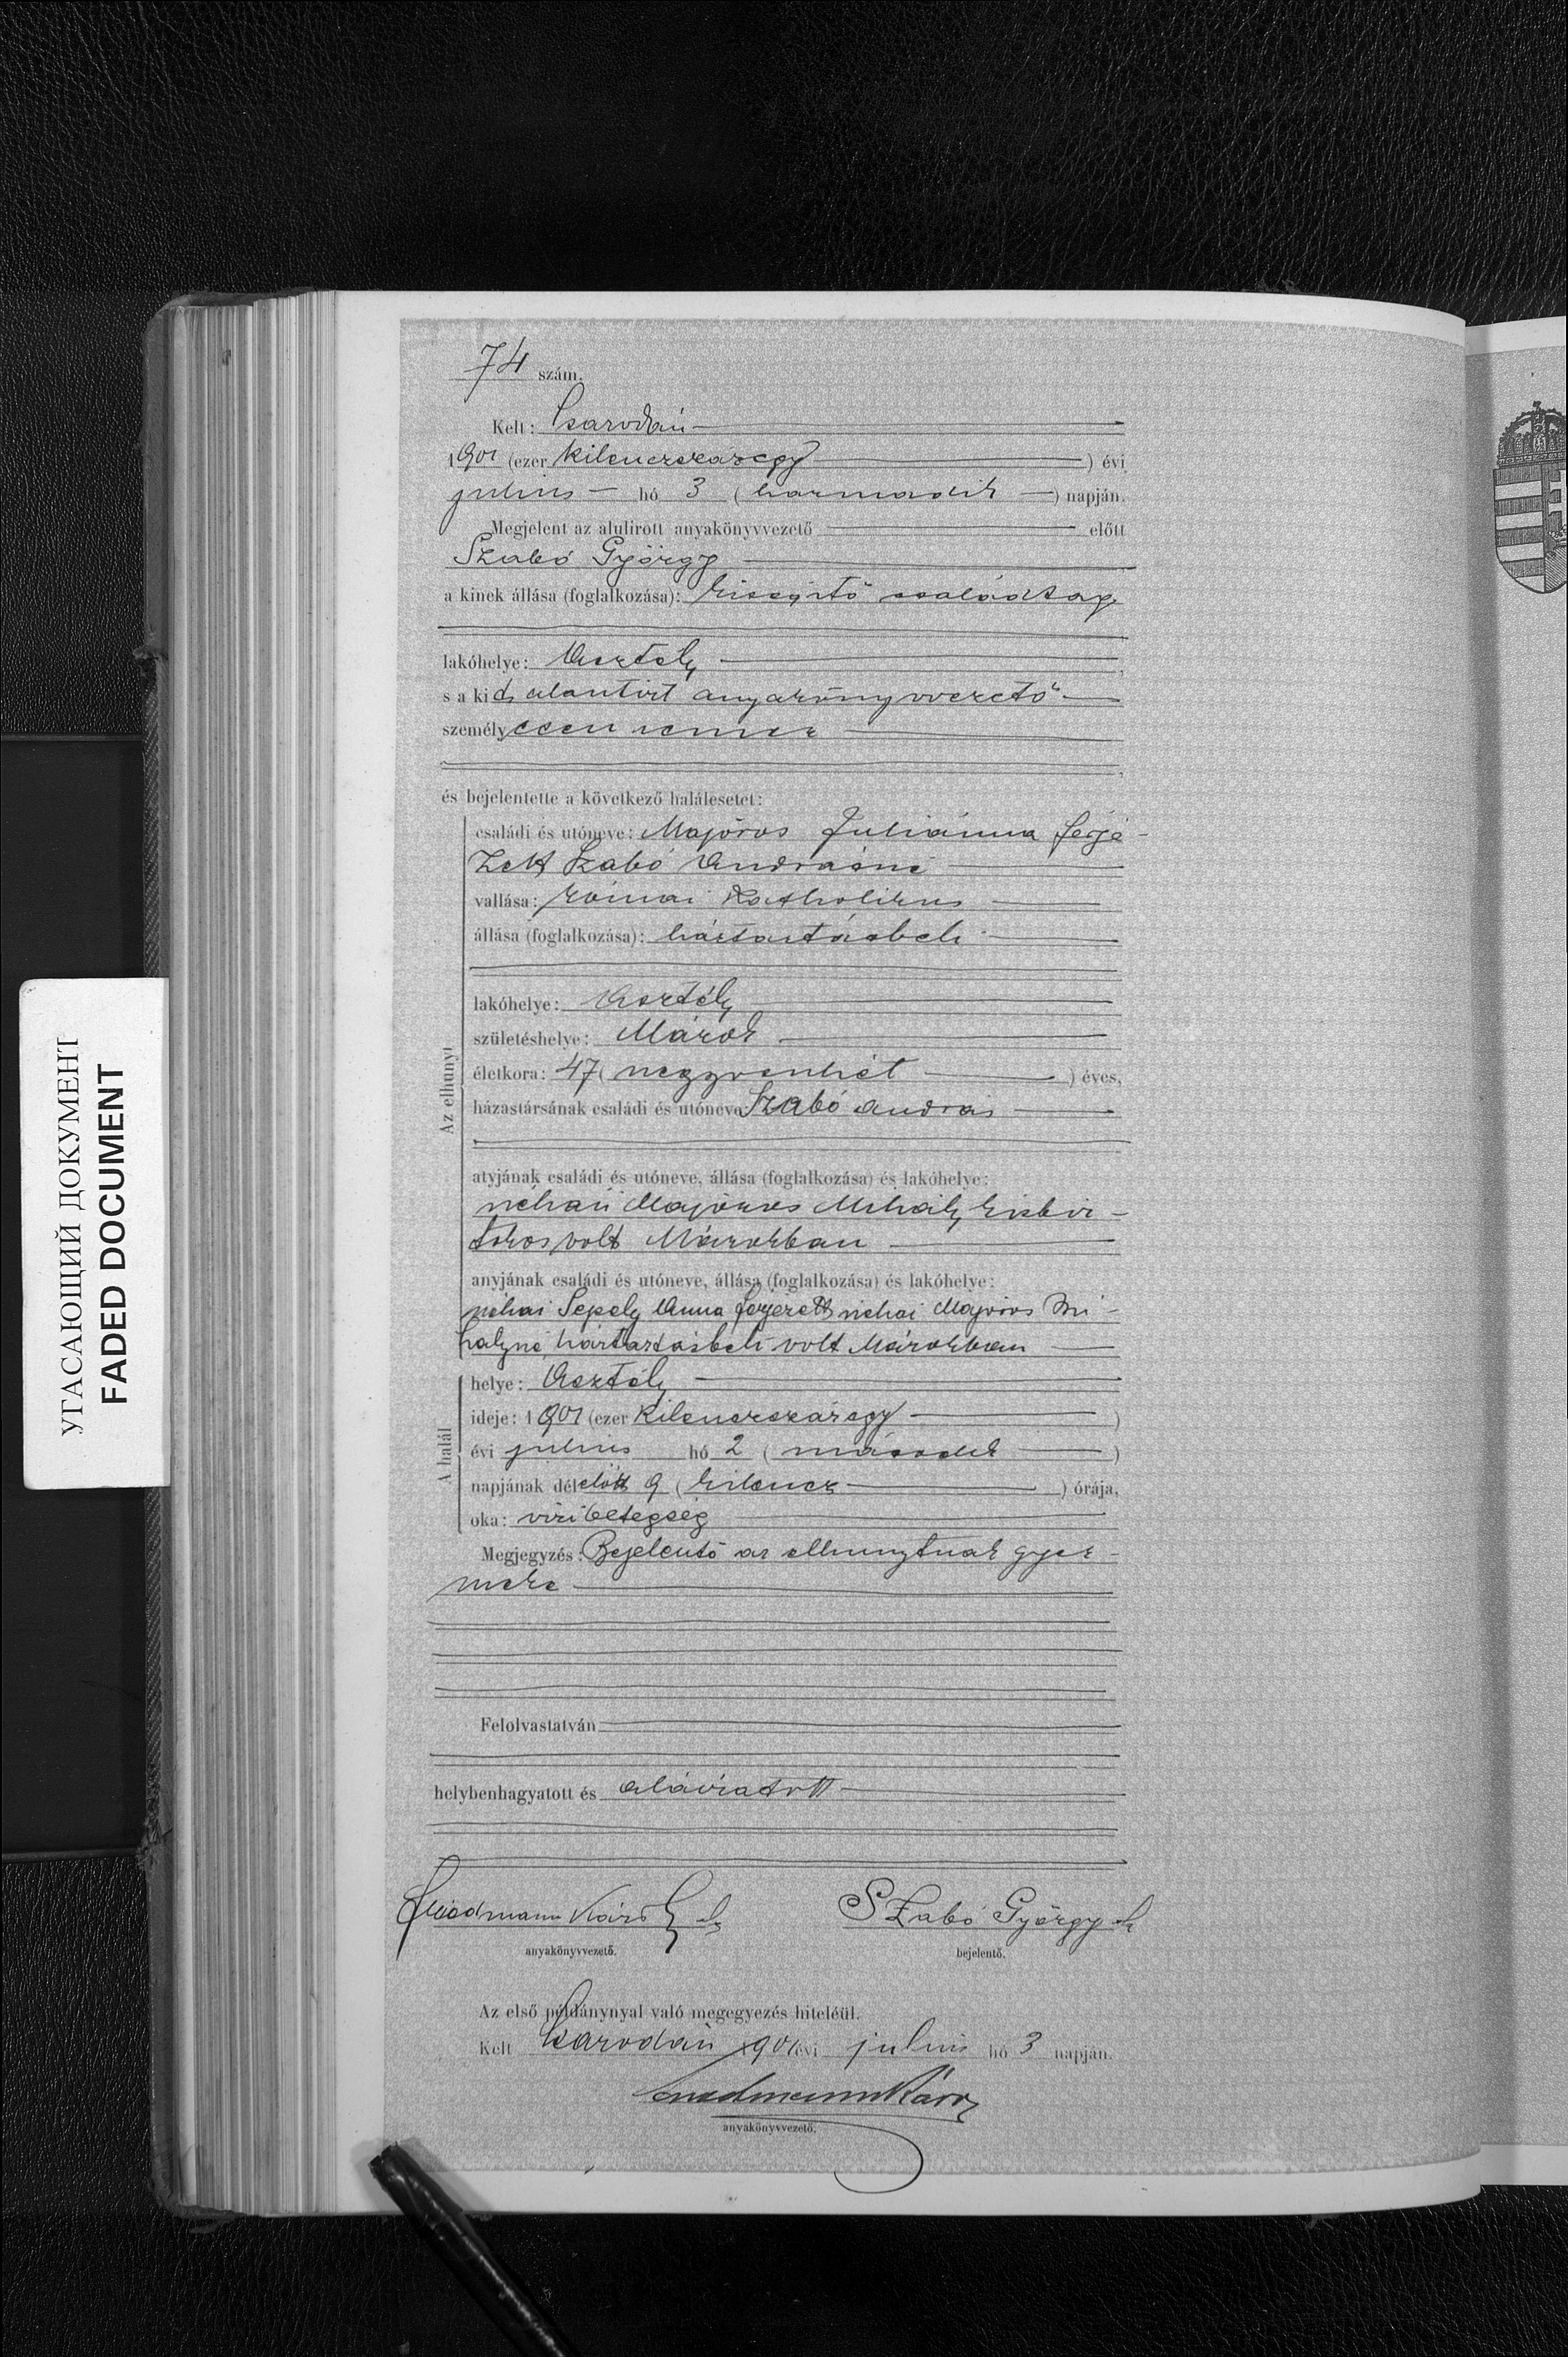 74 szám.
Kelt: Csarodán
1901 (ezer kilenczszázegy) évi
julius hó 3 (harmadik) napján.
Megjelent az alulirott anyakönyvvezető előtt
Szabó György
a kinek állása (foglalkozása): kisegítő családtag
lakóhelye: Asztély,
s a kit alantirt anyakönyvvezető
személyesen ismer
és bejelentette a következő halálesetet:
Az elhunyt
családi és utóneve: Majoros Juliánna férje-
zett Szabó Andrásné
vallása: római katholikus
állása (foglalkozása): háztartásbeli
lakóhelye: Asztély
születéshelye: Márok
életkora: 47 (negyvenhét) éves,
házastársának családi és utóneve: Szabó András
atyjának családi és utóneve, állása (foglalkozása) és lakóhelye:
néhai Majoros Mihály kisbir-
tokos volt Márokban
anyjának családi és utóneve, állása (foglalkozása) és lakóhelye:
néhai Sepely Anna férjezett néhai Majoros Mi-
hályné háztartásbeli volt Márokban
A halál
helye: Asztély
ideje: 1901 (ezer kilenczszázegy)
évi julius hó 2 (második)
napjának délelőtt 9 (kilencz) órája,
oka: vizibetegség
Megjegyzés: Bejelentő az elhunytnak gyer-
meke
Felolvastatván
helybenhagyatott és aláíratott
Friedmann Károly Szabó György
anyakönyvvezető. bejelentő.
Az első példánynyal való megegyezés hiteléül.
Kelt Csarodán 1901 évi julius hó 3 napján.
Friedmann Károly
anyakönyvvezető.
УГАСАЮЩИЙ ДОКУМЕНТ
FADED DOCUMENT